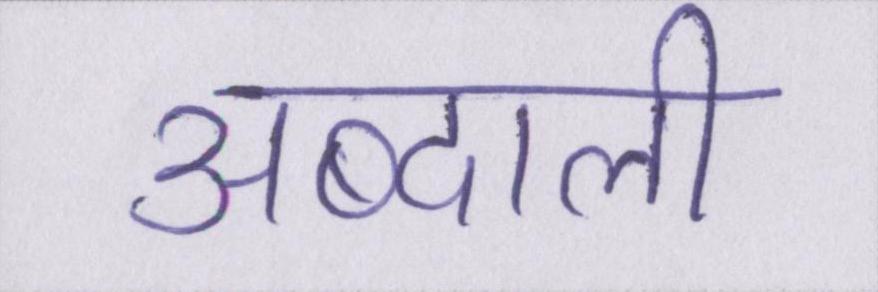 अब्दाली